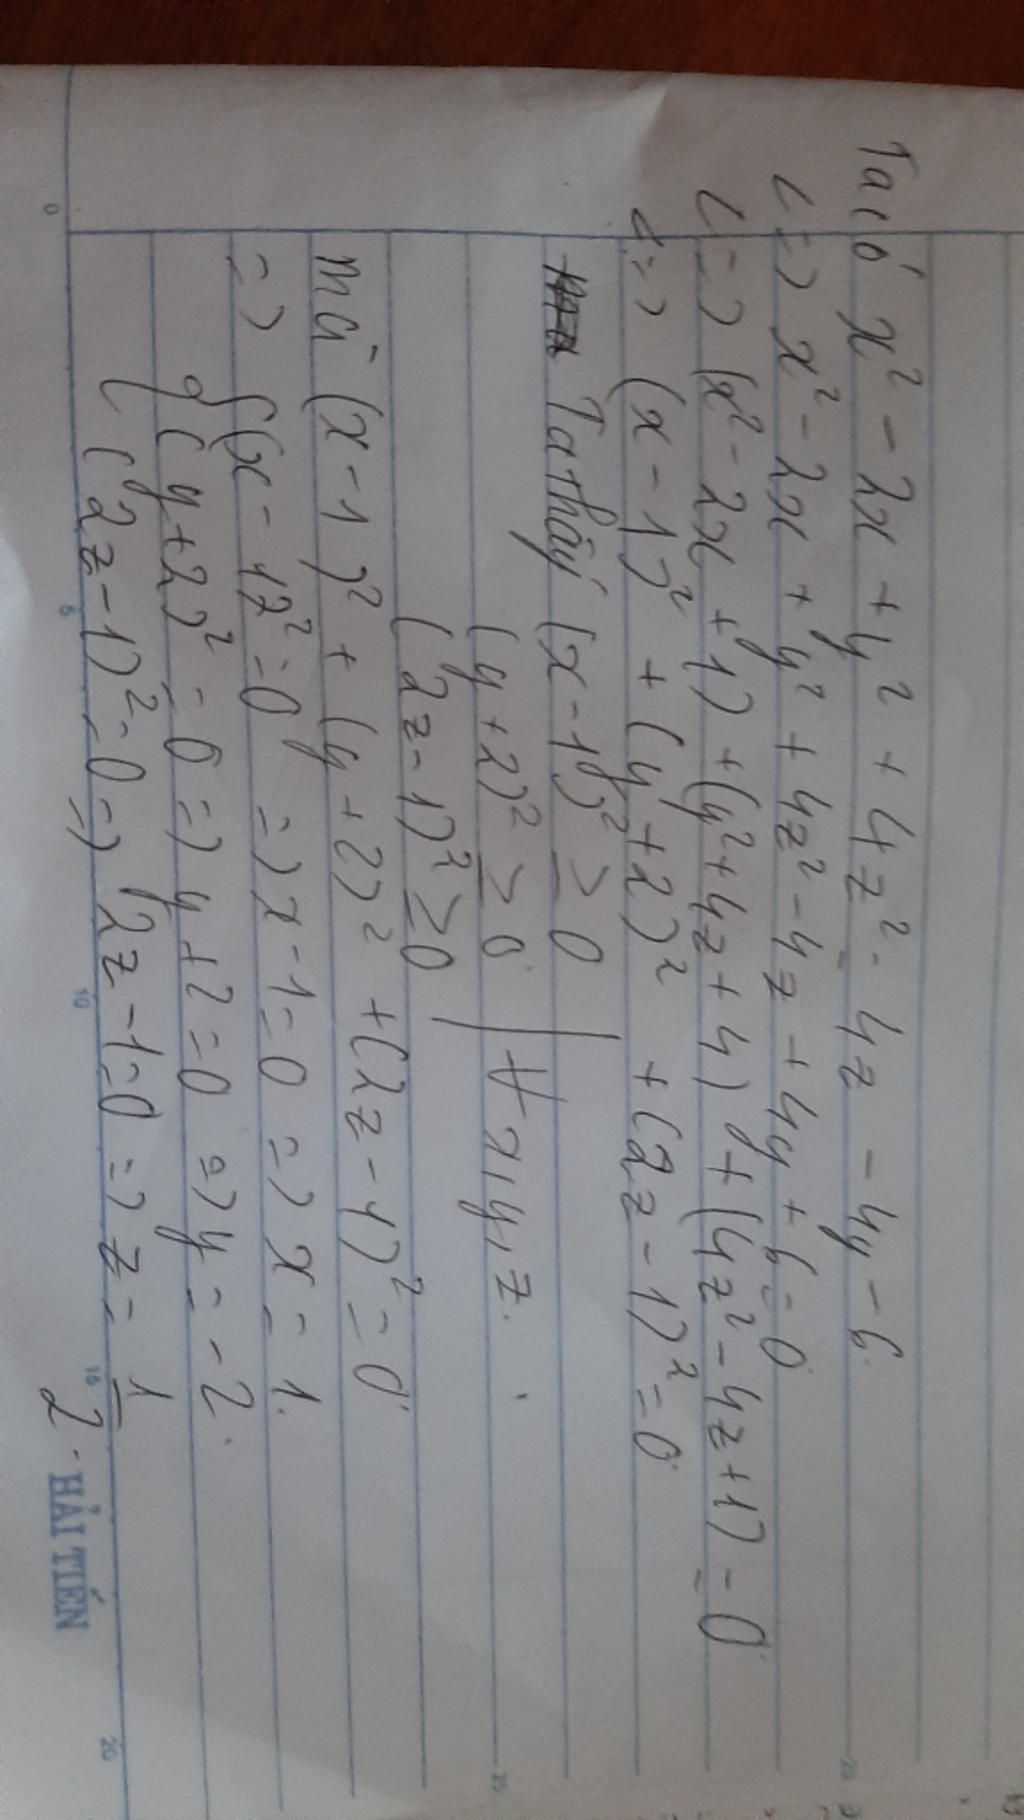 Ta có x² - 2x + y² + 4z² = 4z - 4y - 6.
<=> x² - 2x + y² + 4z² - 4z + 4y + 6 = 0
<=> (x² - 2x + 1) + (y² + 4z + 4) + (4z² - 4z + 1) = 0
<=> (x - 1)² + (y + 2)² + (2z - 1)² = 0
Ta thấy (x - 1)² ≥ 0
(y + 2)² ≥ 0 | ∀ x, y, z.
(2z - 1)² ≥ 0
mà (x - 1)² + (y + 2)² + (2z - 1)² = 0
=> { (x - 1)² = 0 => x - 1 = 0 => x = 1.
(y + 2)² = 0 => y + 2 = 0 => y = -2.
(2z - 1)² = 0 => 2z - 1 = 0 => z = 1/2
0 5 10 15 20
HẢI TIẾN